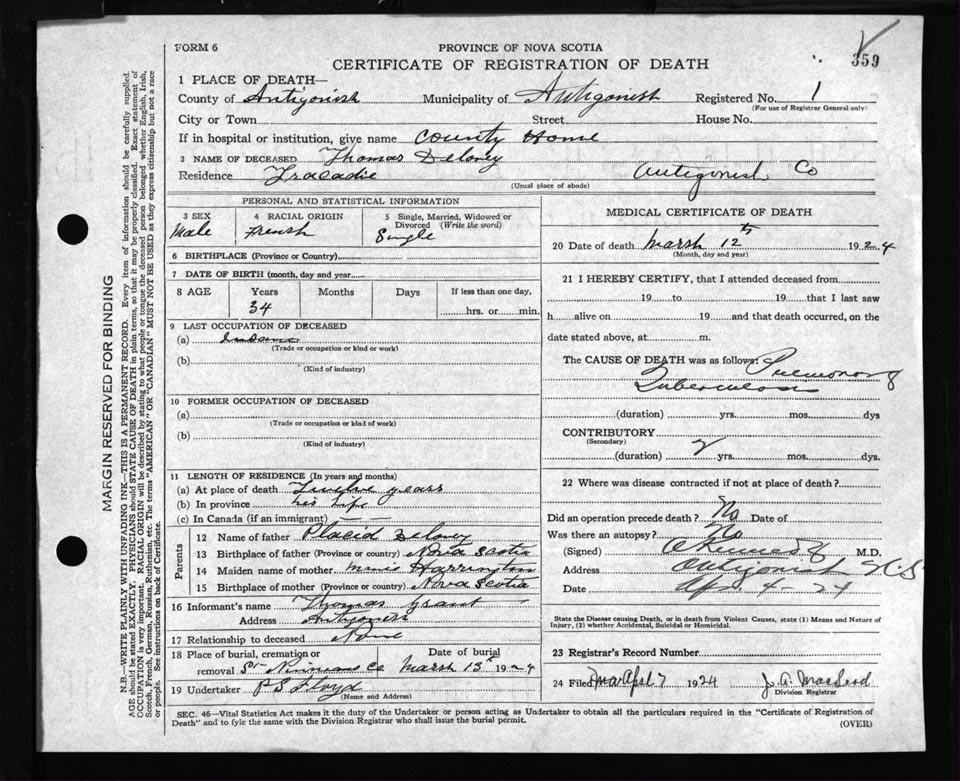 FORM 6
PROVINCE OF NOVA SCOTIA
359
CERTIFICATE OF REGISTRATION OF DEATH
1 PLACE OF DEATH—
County of Antigonish Municipality of Antigonish Registered No. 1
(For use of Registrar General only)
City or Town Street House No.
If in hospital or institution, give name County Home
2 NAME OF DECEASED Thomas Delorey
Residence Tracadie Antigonish Co
(Usual place of abode)
PERSONAL AND STATISTICAL INFORMATION
3 SEX
Male
4 RACIAL ORIGIN
French
5 Single, Married, Widowed or Divorced (Write the word)
Single
6 BIRTHPLACE (Province or Country)
7 DATE OF BIRTH (month, day and year)
8 AGE Years Months Days If less than one day.
34 hrs. or min.
9 LAST OCCUPATION OF DECEASED
(a) Insane
(Trade or occupation or kind or work)
(b)
(Kind of industry)
10 FORMER OCCUPATION OF DECEASED
(a)
(Trade or occupation or kind of work)
(b)
(Kind of industry)
11 LENGTH OF RESIDENCE (In years and months)
(a) At place of death Twelve years
(b) In province his life
(c) In Canada (if an immigrant)
Parents
12 Name of father Placid Delorey
13 Birthplace of father (Province or country) Nova Scotia
14 Maiden name of mother Harrington
15 Birthplace of mother (Province or country) Nova Scotia
16 Informant's name Thomas Grant
Address Antigonish
17 Relationship to deceased None
18 Place of burial, cremation or Date of burial
removal St Ninians Co March 13th 1924
19 Undertaker P S Floyd
(Name and Address)
MEDICAL CERTIFICATE OF DEATH
20 Date of death March 12th 1924
(Month, day and year)
21 I HEREBY CERTIFY, that I attended deceased from
19 to 19 that I last saw
h alive on 19 and that death occurred, on the
date stated above, at m.
The CAUSE OF DEATH was as follows: Pulmonary
Tuberculosis
(duration) yrs. mos. dys
CONTRIBUTORY
(Secondary)
(duration) yrs. mos. dys.
22 Where was disease contracted if not at place of death?
Did an operation precede death? No Date of
Was there an autopsy? No
(Signed) M.D.
Address Antigonish N.S
Date Apr 4 - 24
State the Disease causing Death, or in death from Violent Causes, state (1) Means and Nature of
Injury, (2) whether Accidental, Suicidal or Homicidal.
23 Registrar's Record Number
24 Filed April 7 1924
Division Registrar
SEC. 46—Vital Statistics Act makes it the duty of the Undertaker or person acting as Undertaker to obtain all the particulars required in the "Certificate of Registration of
Death" and to fyle the same with the Division Registrar who shall issue the burial permit. (OVER)
MARGIN RESERVED FOR BINDING
N.B.—WRITE PLAINLY WITH UNFADING INK—THIS IS A PERMANENT RECORD. Every item of information should be carefully supplied.
AGE should be stated EXACTLY. PHYSICIANS should STATE CAUSE OF DEATH in plain terms, so that it may be properly classified. Exact statement of
OCCUPATION is very important. RACIAL ORIGIN will be described by stating to what people or tongue the deceased person belonged whether English, Irish,
Scotch, French, German, Russian, Ruthenian, etc. The terms "AMERICAN" OR "CANADIAN" MUST NOT BE USED as they express citizenship but not a race
or people. See instructions on back of Certificate.